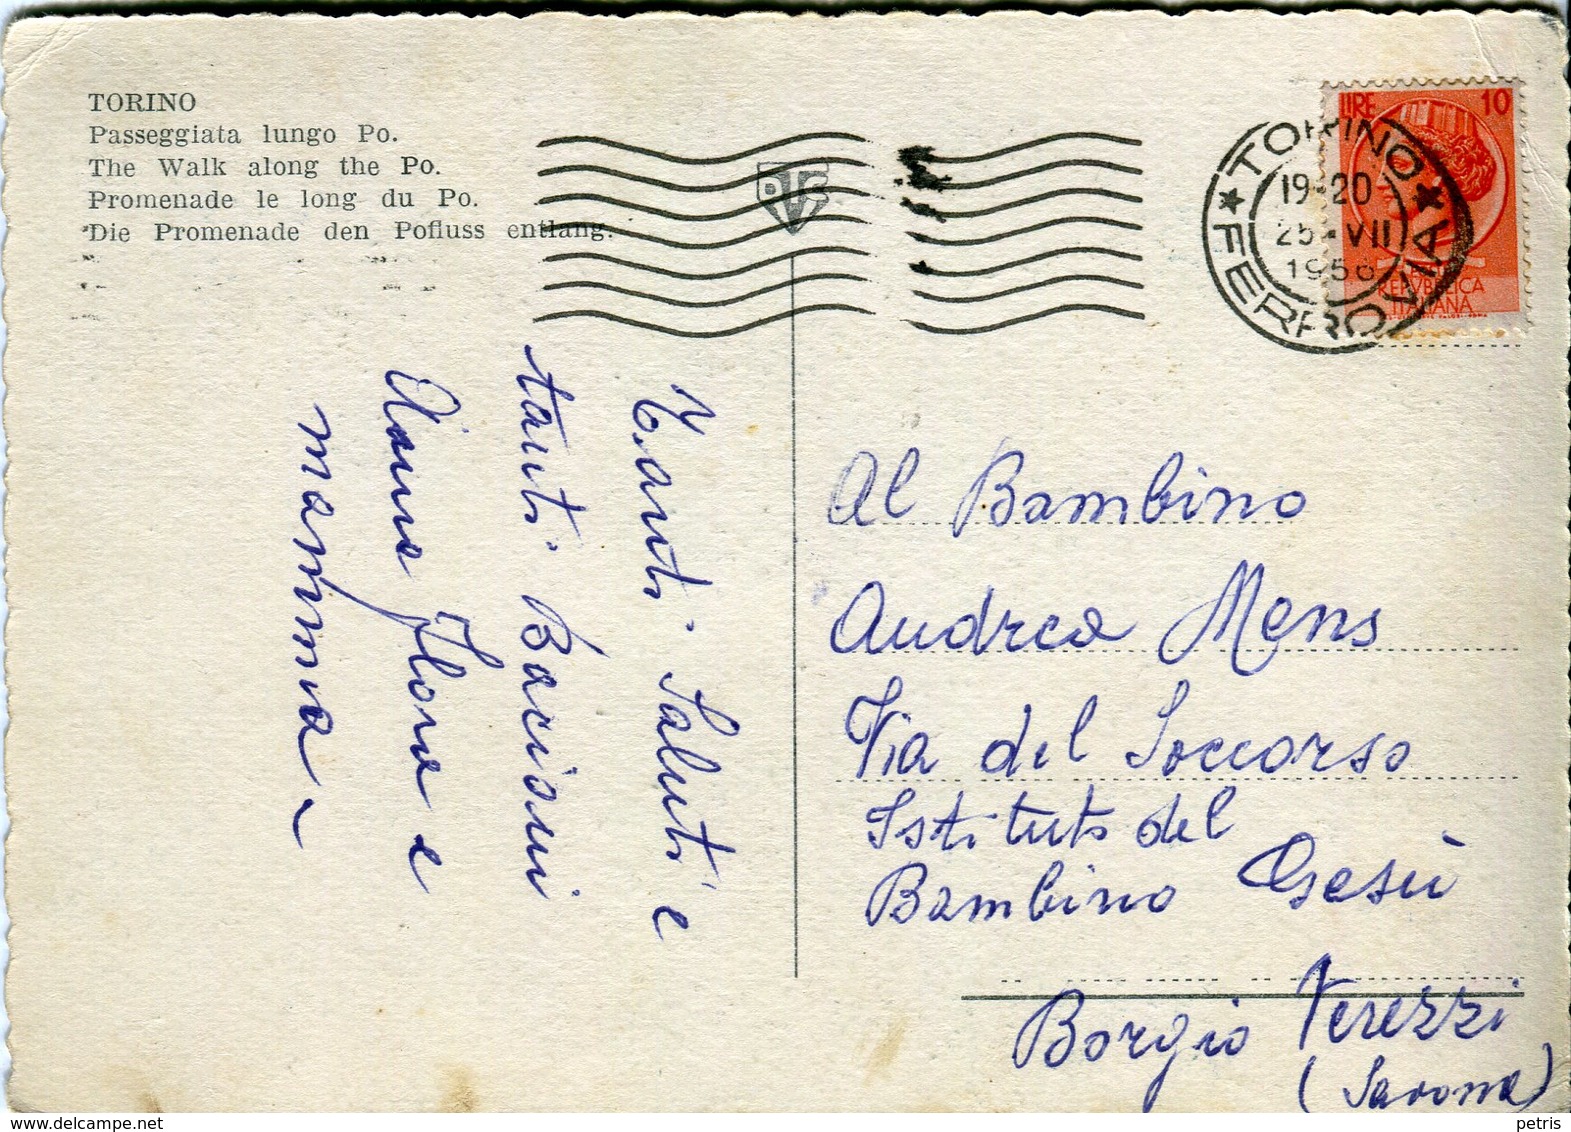 TORINO
Passeggiata lungo Po.
The Walk along the Po.
Promenade le long du Po.
Die Promenade den Pofluss entlang.
LIRE 10
REPVBBLICA
ITALIANA
TORINO
FERROVIA
19-20
25 - VII
1956
Tanti Saluti e
tanti Bacissini
Flora e
mamma
Al Bambino
Andrea Mens
Via del Soccorso
Istituto del
Bambino Gesù
Borgio Verezzi
(Savona)
delcampe.net
petris